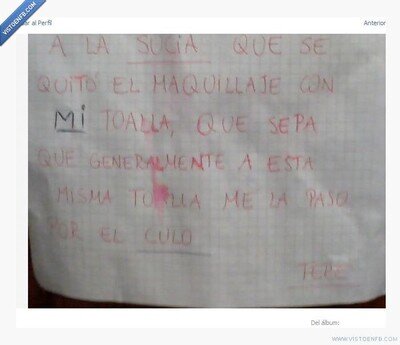 VISTOENFB.COM
al Perfil
Anterior
A LA SUCIA QUE SE
QUITÓ EL MAQUILLAJE CON
MI TOALLA, QUE SEPA
QUE GENERALMENTE A ESTA
MISMA TOALLA ME LA PASO
POR EL CULO
Del álbum:
WWW.VISTOENFB.COM